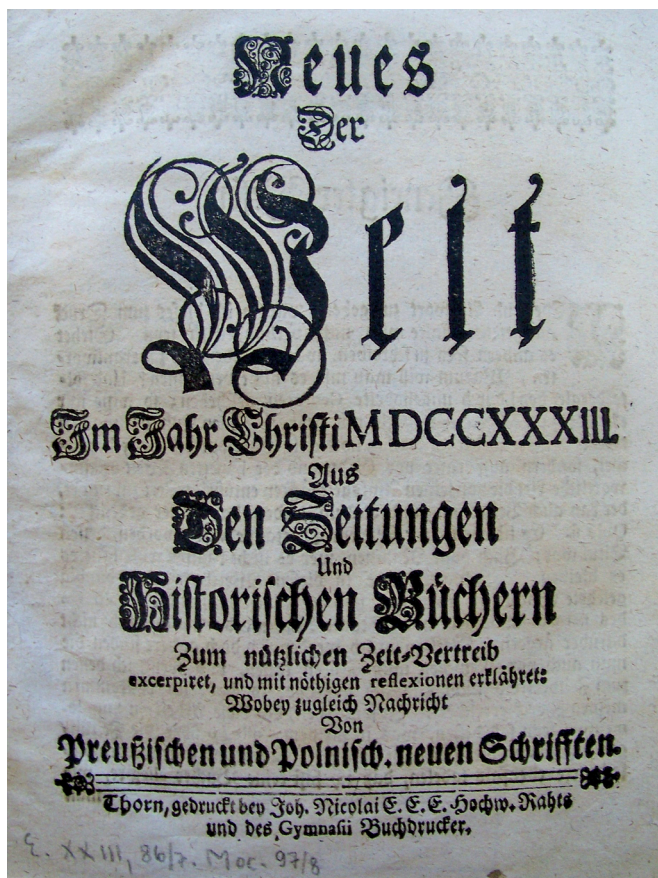 Neues
Der
Welt
Im Jahr Christi MDCCXXXIII.
Aus
Den Zeitungen
Und
Historischen Büchern
Zum nützlichen Zeit-Vertreib
excerpiret, und mit nöthigen reflexionen erklähret:
Wobey zugleich Nachricht
Von
Preußischen und Polnisch. neuen Schrifften.
Thorn, gedruckt bey Joh. Nicolai E. E. E. Hochw. Rahts
und des Gymnasii Buchdrucker.
E. XXIII, 86/7. Moc. 97/8